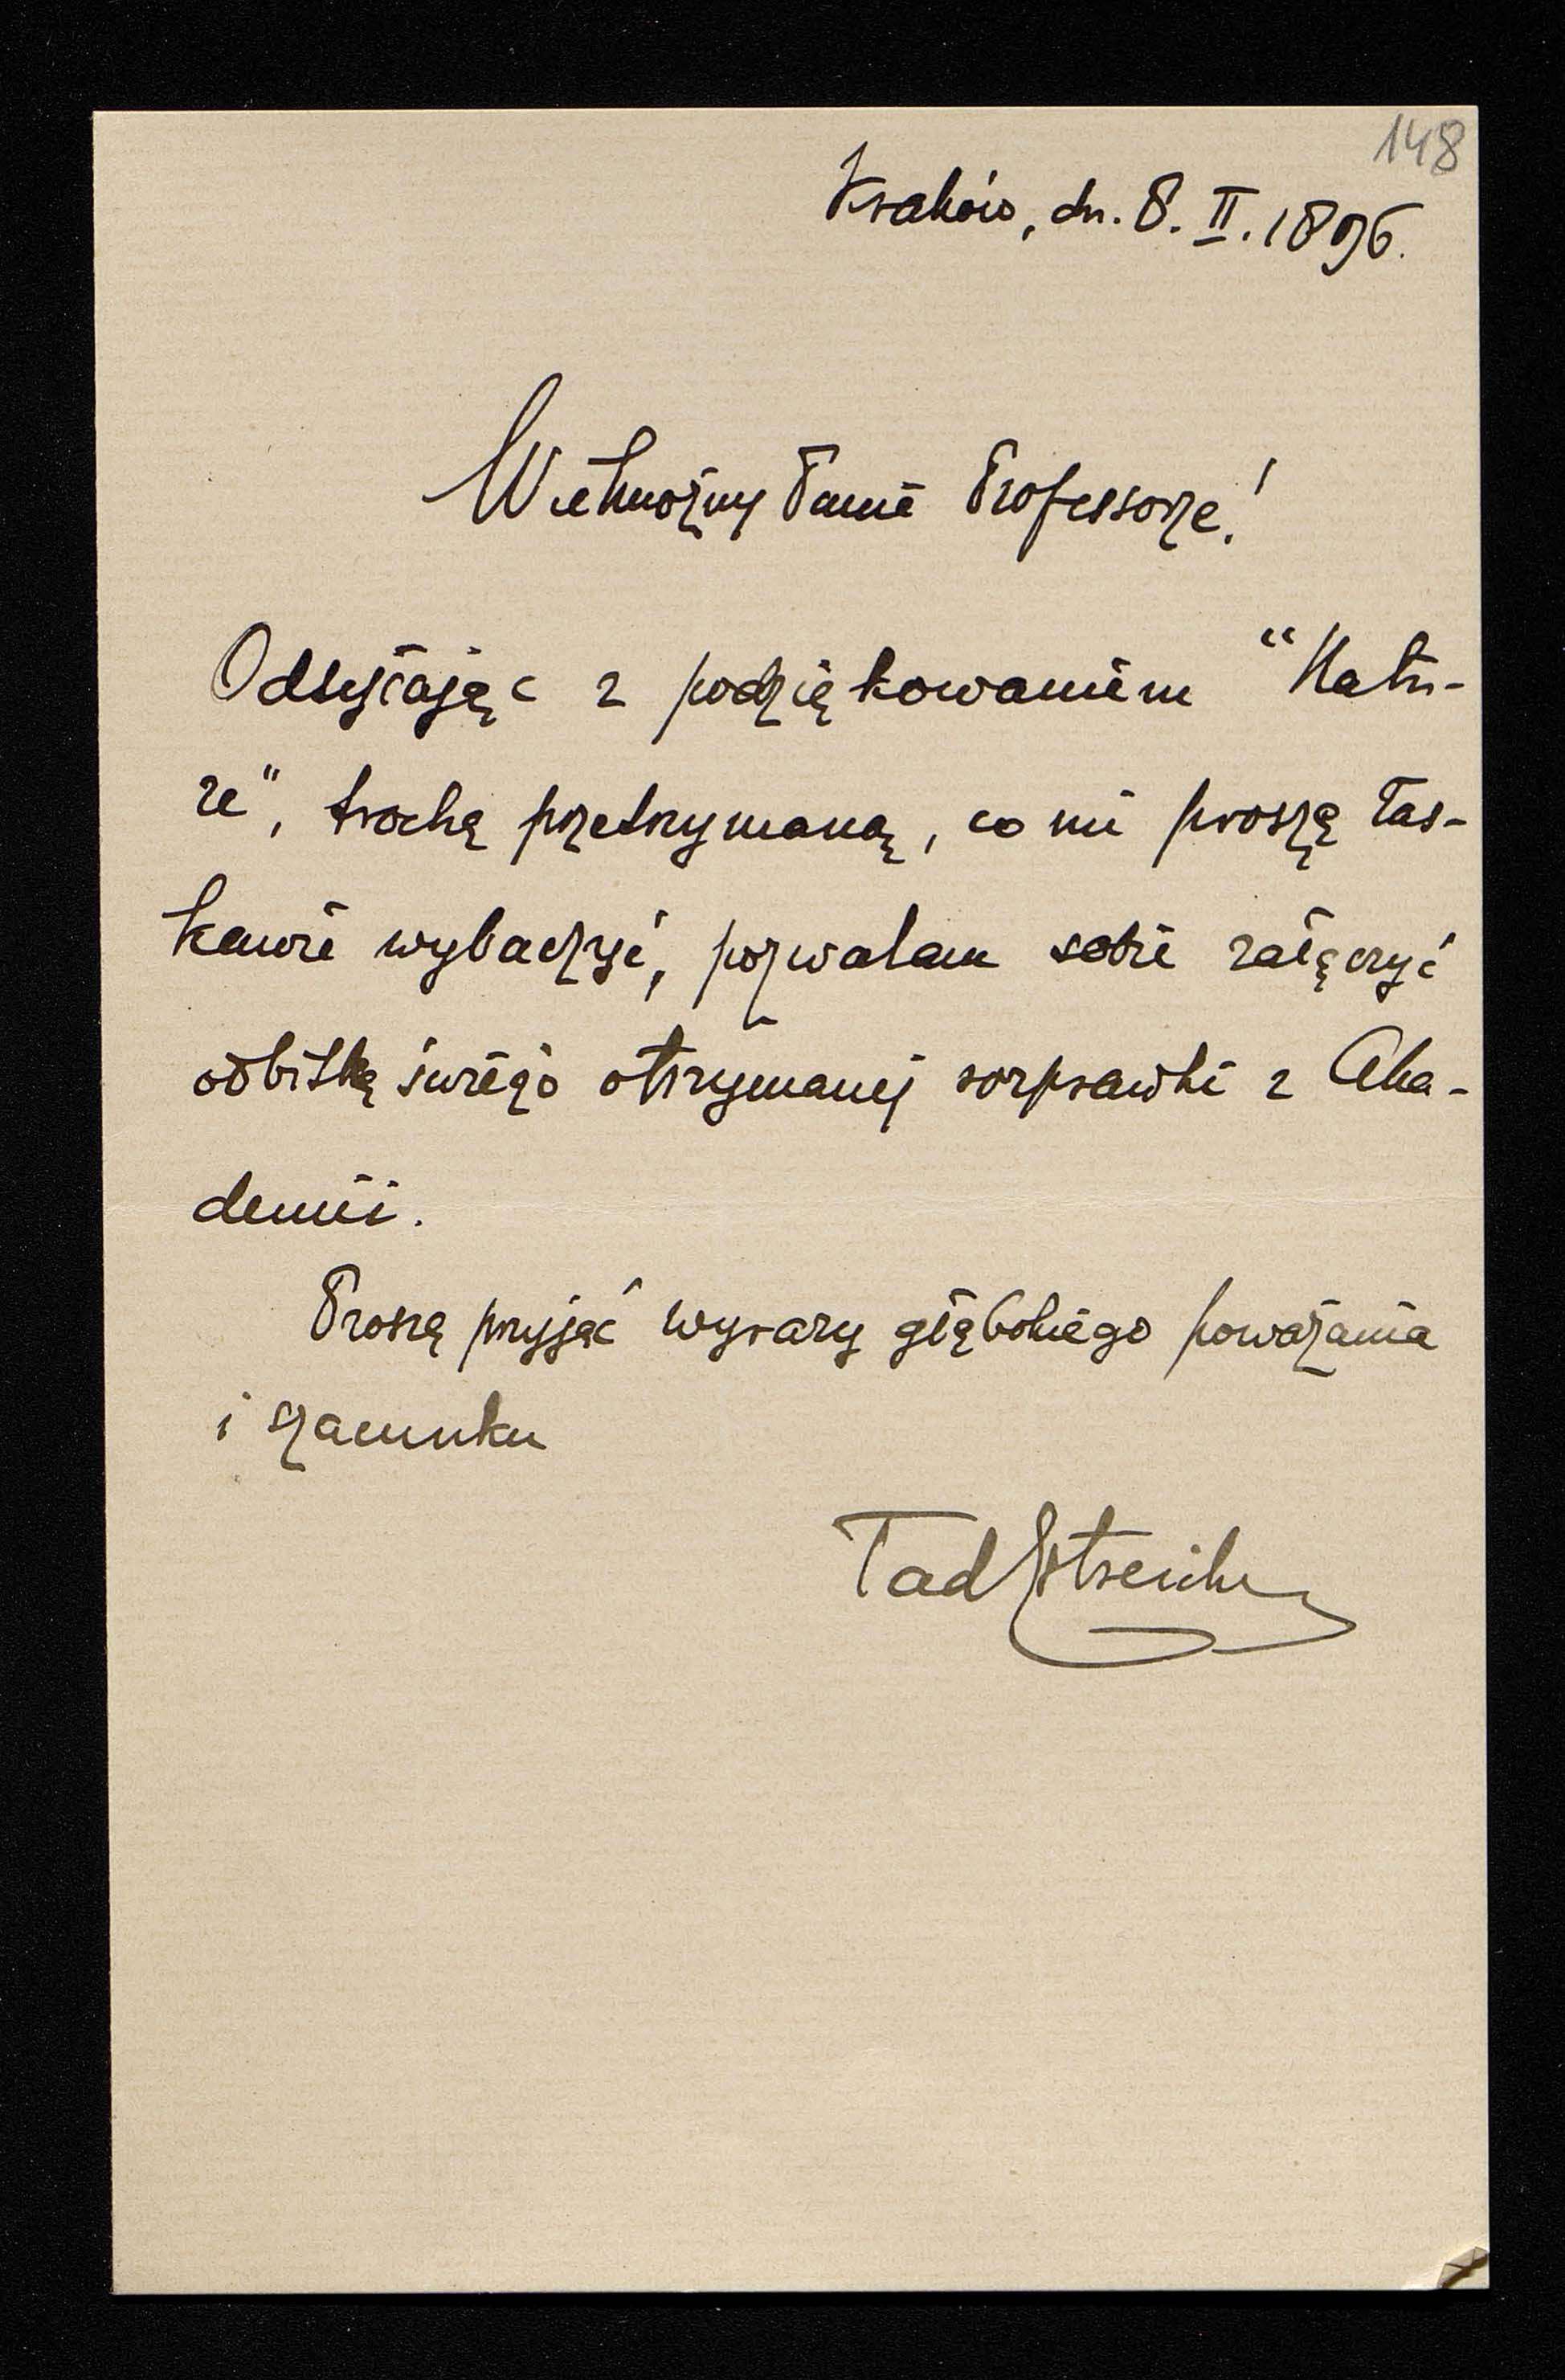 148
Kraków, dn. 8. II. 1896.
Wielmożny Panie Professorze!
Odsyłając z podziękowaniem "Natu-
re", trochę przetrzymaną, co mi proszę łas-
kawie wybaczyć, pozwalam sobie załączyć
odbitkę świeżo otrzymanej rozprawki z Aka-
demii.
Proszę przyjąć wyrazy głębokiego poważania
i szacunku
Tad Estreicher